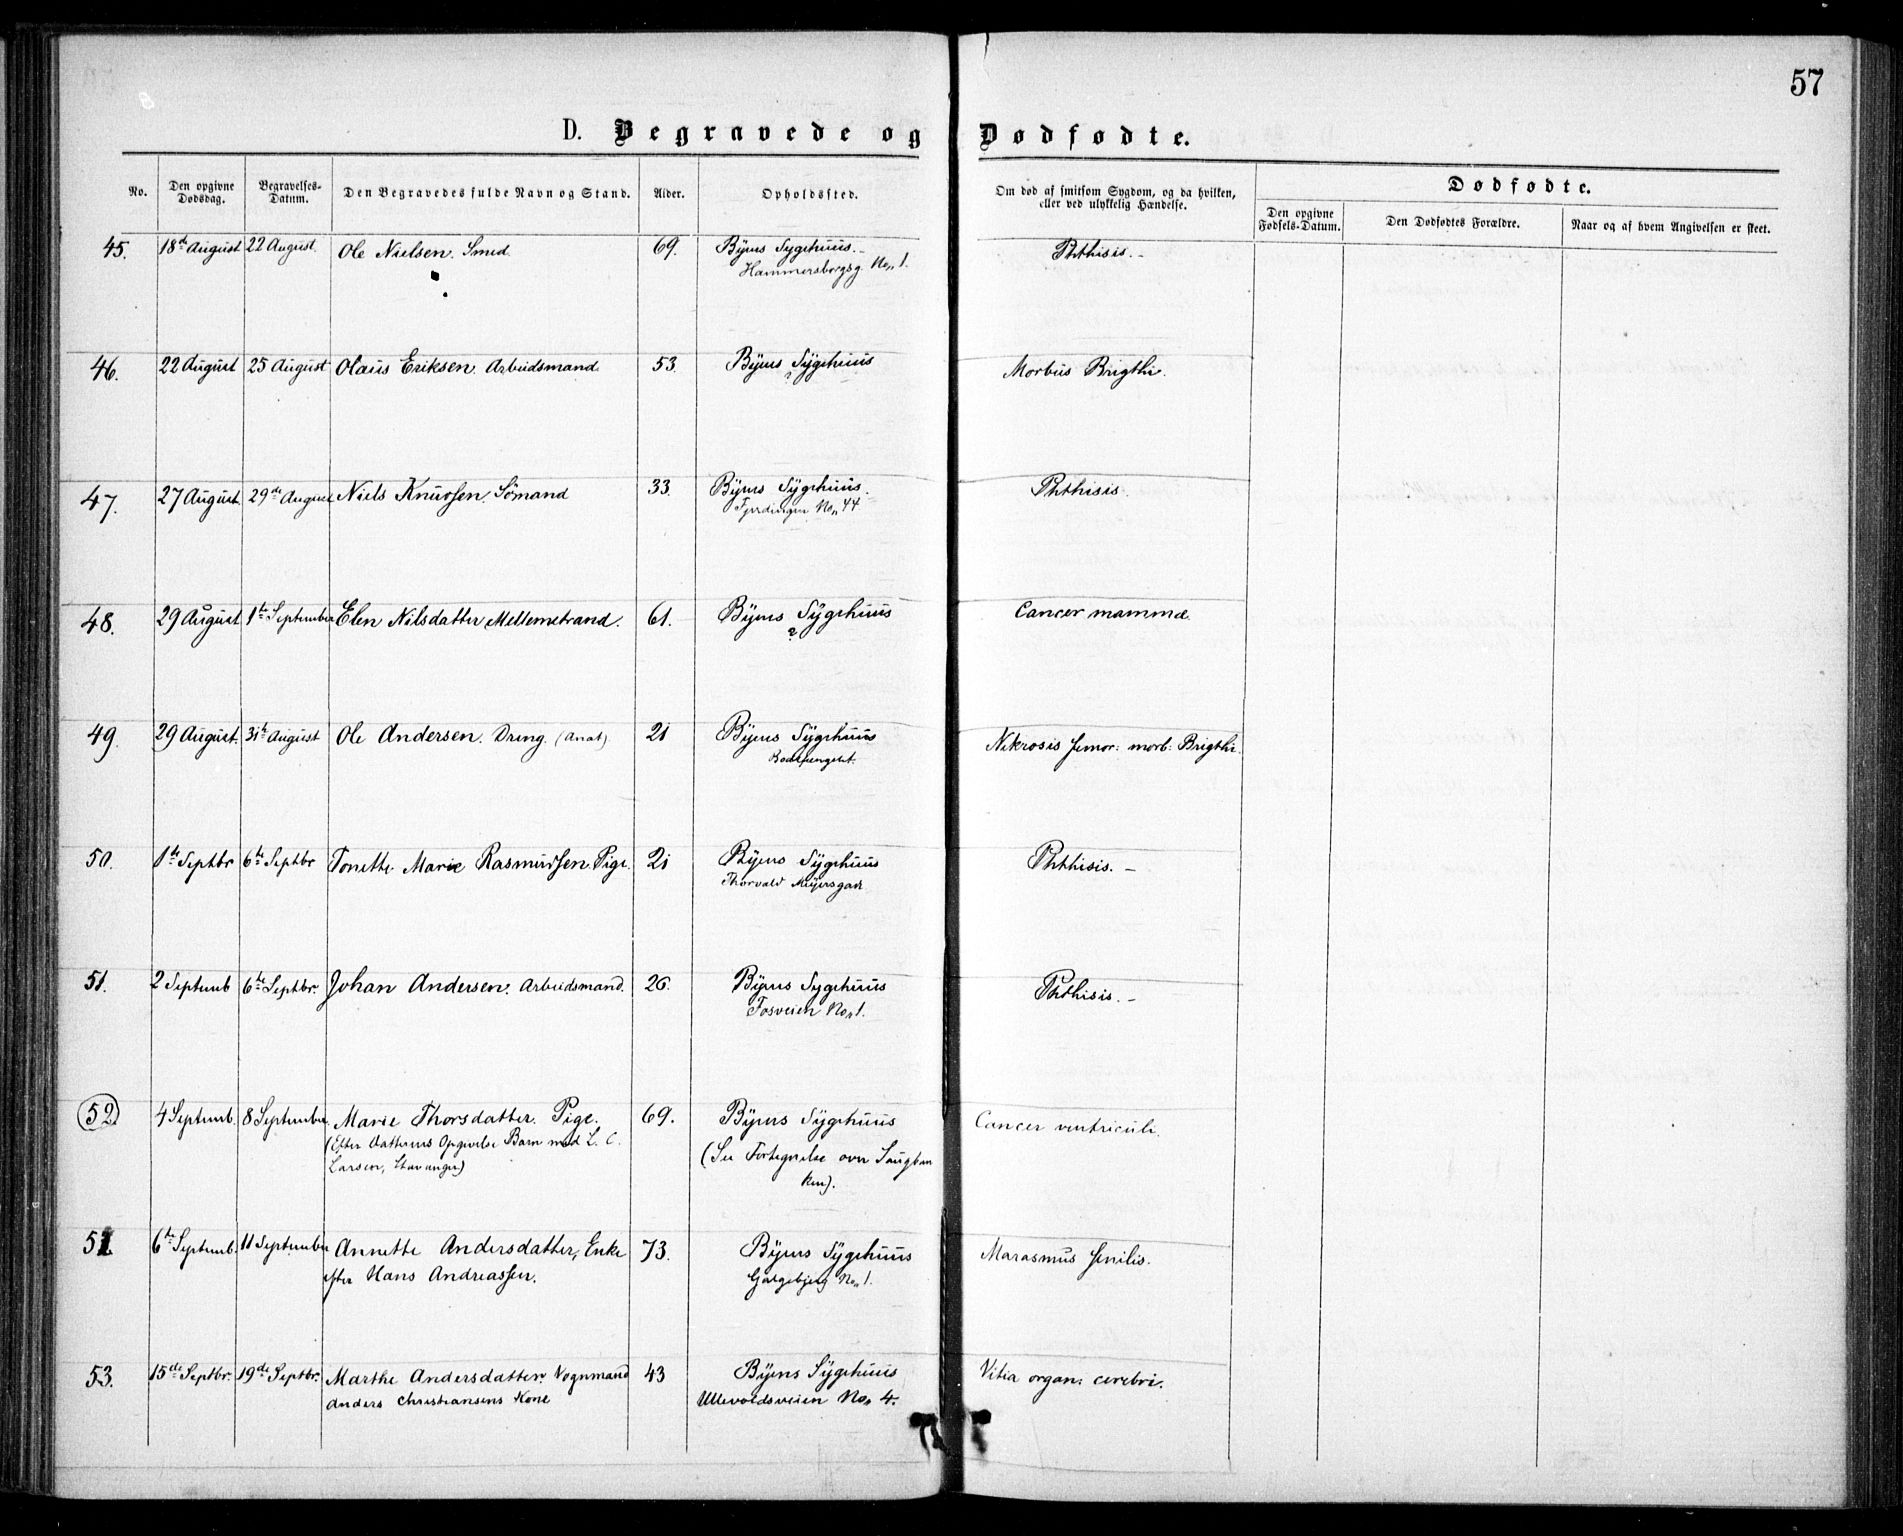 57
D. Begravede og Dødfødte.
No. Den opgivne Dødsdag. Begravelses-Datum. Den Begravedes fulde Navn og Stand. Alder. Opholdssted. Om død af smitsom Sygdom, og da hvilken, eller ved ulykkelig Hændelse. Dødfødte.
Den opgivne Fødsels-Datum. Den Dødfødtes Forældre. Naar og af hvem Angivelsen er skeet.
45. 18de August 22 August. Ole Nielsen. Smed 69. Byens Sygehuus. Phthisis. -
Hammersborgsg. No. 1.
46. 22 August 25 August Olaus Eriksen. Arbeidsmand. 53. Byens Sygehuus Morbus Brigthi.
?
47. 27 August 29de August Niels Knudsen. Sömand 33. Byens Sygehuus. Phthisis.
No. 44
48. 29 August 1te September Elen Nilsdatter Mellemstrand. 61. Byens Sygehuus Cancer mammæ.
?
49. 29 August. 31te August Ole Andersen. Dreng. (Anat) 21 Byens Sygehuus Nekrosis femor: morb: Brigthi.
Bodsfængslet.
50. 1te Septbr 6te Septbr Tonette Marie Rasmudsen. Pige. 21 Byens Sygehuus Phthisis. -
Thorvald Meyersgade
51. 2 Septemb 6te Septbr. Johan Andersen. Arbeidsmand. 26. Byens Sygehuus Phthisis. -
Fosveien No. 1.
52. 4 Septemb. 8 September. Marie Thorsdatter. Pige. 69. Byens Sygehuus Cancer ventriculi.
(Efter Datterens Opgivelse Barn med L. C. (See Fortegnelse over
Larsen, Stavanger)
52 6te Septemb. 11 September Annette Andersdatter, Enke 73. Byens Sygehuus Marasmus senilis.
efter Hans Andreassen. Galgebjerg No. 1.
53. 15de Septbr. 19de Septbr. Marthe Andersdatter. Vognmand 43 Byens Sygehuus Vitia organ: cerebri.
Anders Christiansens Kone Ullevoldsveien No. 4.